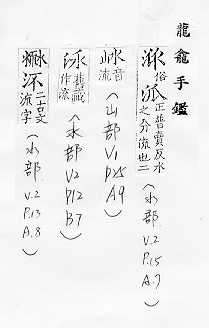 龍龕手鑑
俗
正普賣反水
之分流也二
(水部 V.2 P.15 A.7)
音
流
(山部 V.1 P.25 A.9)
龍龕藏
作流
(水部 V.2 P.12 B.7)
二古文
流字
(水部 V.2 P.13 A.8)